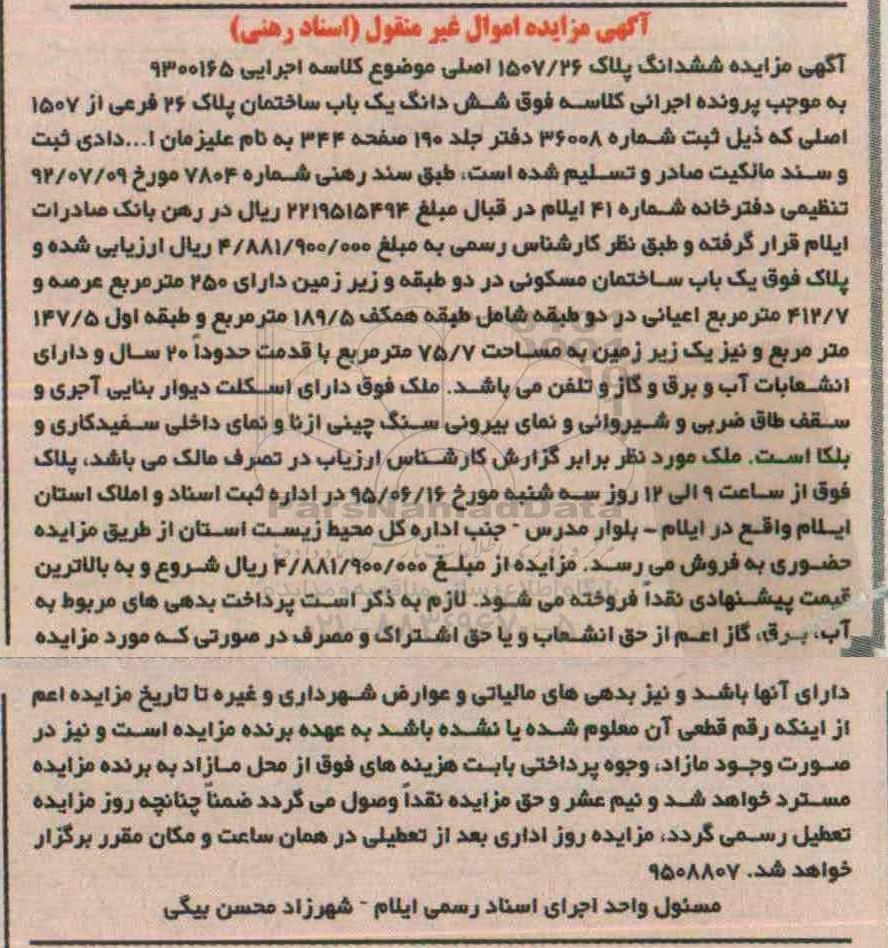 آگهی مزایده اموال غیر منقول (اسناد رهنی)
آگهی مزایده ششدانگ پلاک ۱۵۰۷/۲۶ اصلی موضوع کلاسه اجرایی ۹۳۰۰۱۶۵
به موجب پرونده اجرائی کلاسه فوق شش دانگ یک باب ساختمان پلاک ۲۶ فرعی از ۱۵۰۷
اصلی که ذیل ثبت شماره ۳۶۰۰۸ دفتر جلد ۱۹۰ صفحه ۳۴۴ به نام علیزمان ا...دادی ثبت
و سند مالکیت صادر و تسلیم شده است، طبق سند رهنی شماره ۷۸۰۴ مورخ ۹۲/۰۷/۰۹
تنظیمی دفترخانه شماره ۴۱ ایلام در قبال مبلغ ۲۲۱۹۵۱۵۴۹۴ ریال در رهن بانک صادرات
ایلام قرار گرفته و طبق نظر کارشناس رسمی به مبلغ ۴/۸۸۱/۹۰۰/۰۰۰ ریال ارزیابی شده و
پلاک فوق یک باب ساختمان مسکونی در دو طبقه و زیر زمین دارای ۲۵۰ مترمربع عرصه و
۴۱۲/۷ مترمربع اعیانی در دو طبقه شامل طبقه همکف ۱۸۹/۵ مترمربع و طبقه اول ۱۴۷/۵
متر مربع و نیز یک زیر زمین به مساحت ۷۵/۷ مترمربع با قدمت حدوداً ۲۰ سال و دارای
انشعابات آب و برق و گاز و تلفن می باشد. ملک فوق دارای اسکلت دیوار بنایی آجری و
سقف طاق ضربی و شیروانی و نمای بیرونی سنگ چینی ازنا و نمای داخلی سفیدکاری و
بلکا است. ملک مورد نظر برابر گزارش کارشناس ارزیاب در تصرف مالک می باشد، پلاک
فوق از ساعت ۹ الی ۱۲ روز سه شنبه مورخ ۹۵/۰۶/۱۶ در اداره ثبت اسناد و املاک استان
ایلام واقع در ایلام - بلوار مدرس - جنب اداره کل محیط زیست استان از طریق مزایده
حضوری به فروش می رسد. مزایده از مبلغ ۴/۸۸۱/۹۰۰/۰۰۰ ریال شروع و به بالاترین
قیمت پیشنهادی نقداً فروخته می شود. لازم به ذکر است پرداخت بدهی های مربوط به
آب، برق، گاز اعم از حق انشعاب و یا حق اشتراک و مصرف در صورتی که مورد مزایده
دارای آنها باشد و نیز بدهی های مالیاتی و عوارض شهرداری و غیره تا تاریخ مزایده اعم
از اینکه رقم قطعی آن معلوم شده یا نشده باشد به عهده برنده مزایده است و نیز در
صورت وجود مازاد، وجوه پرداختی بابت هزینه های فوق از محل مازاد به برنده مزایده
مسترد خواهد شد و نیم عشر و حق مزایده نقداً وصول می گردد ضمناً چنانچه روز مزایده
تعطیل رسمی گردد، مزایده روز اداری بعد از تعطیلی در همان ساعت و مکان مقرر برگزار
خواهد شد. ۹۵۰۸۸۰۷
مسئول واحد اجرای اسناد رسمی ایلام - شهرزاد محسن بیگی
ParsNamadData